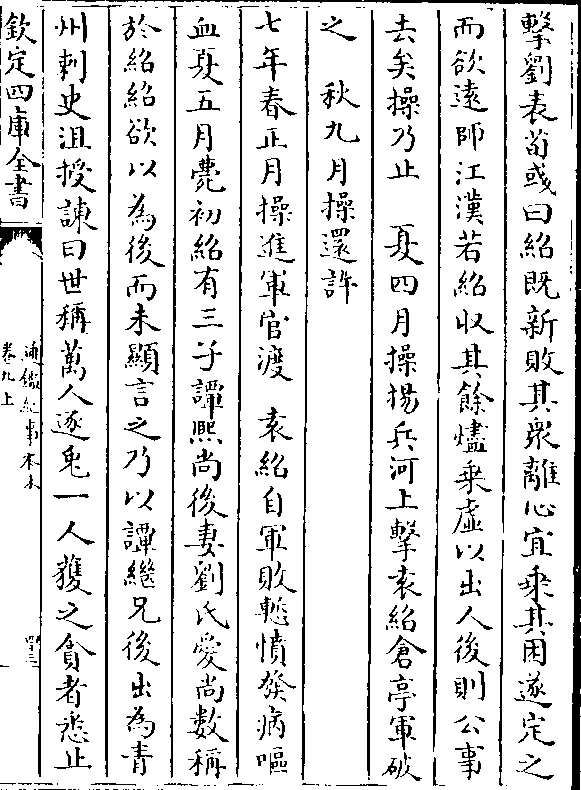 擊劉表荀彧曰紹既新敗其衆離心宜乗其困遂定之
而欲遠師江漢若紹収其餘燼乗虛以出人後則公事
去矣操乃止　夏四月操揚兵河上擊袁紹倉亭軍破
之　秋九月操還許
七年春正月操進軍官渡　袁紹自軍敗慙憤發病嘔
血夏五月薨初紹有三子譚熙尚後妻劉氏愛尚數稱
於紹紹欲以為後而未顯言之乃以譚繼兄後出為青
州刺史沮授諫曰世稱萬人逐兎一人獲之貪者悉止
欽定四庫全書
通鑑紀事本末
卷九上
四十三